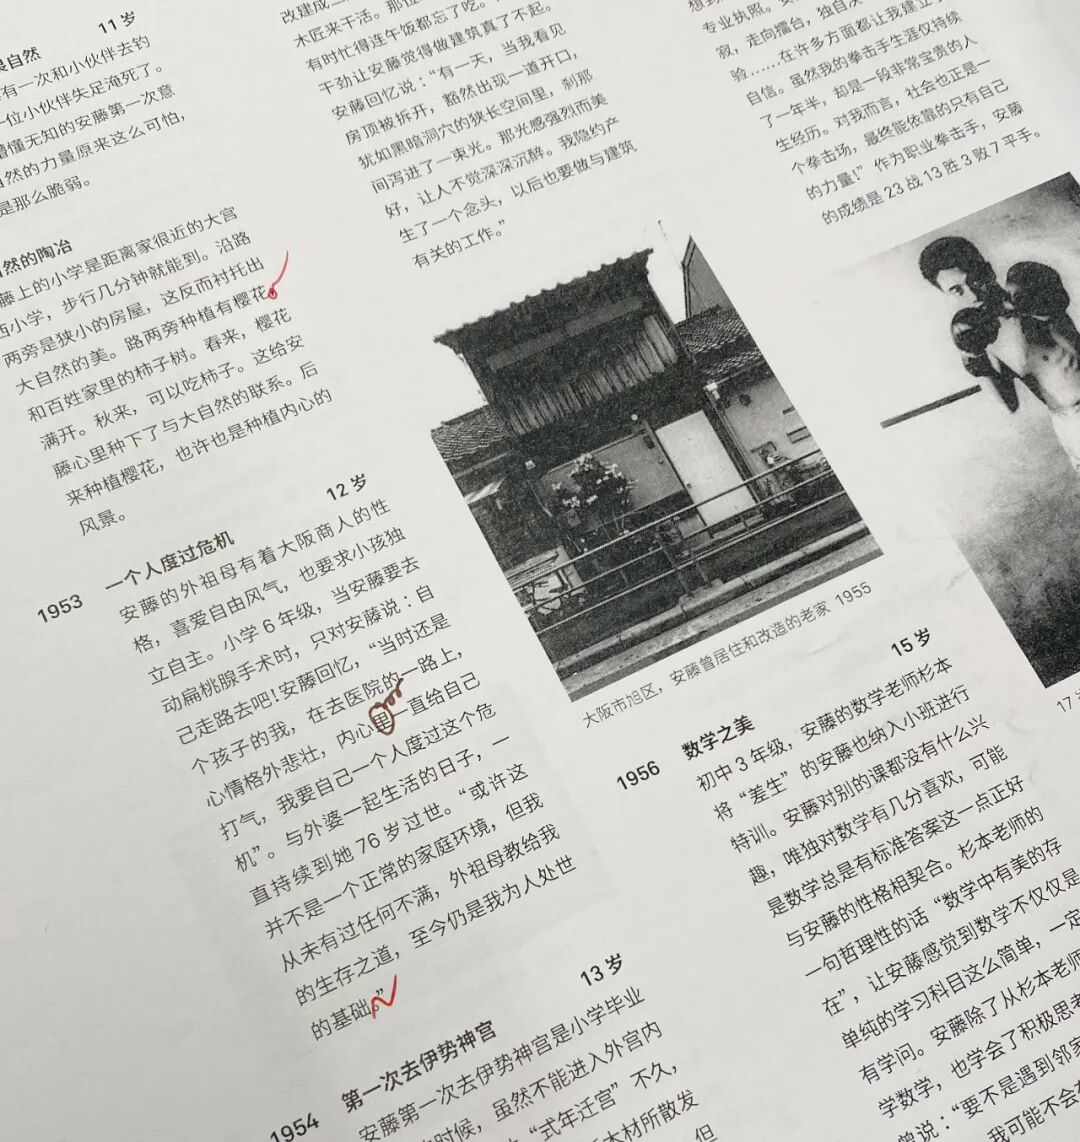 11 岁
自然
有一次和小伙伴去钓
一位小伙伴失足淹死了。
懵懂无知的安藤第一次意
自然的力量原来这么可怕,
是那么脆弱。
自然的陶冶
藤上的小学是距离家很近的大宫
西小学,步行几分钟就能到。沿路
两旁是狭小的房屋,这反而衬托出
大自然的美。路两旁种植有樱花
和百姓家里的柿子树。春来,樱花
满开。秋来,可以吃柿子。这给安
藤心里种下了与大自然的联系。后
来种植樱花,也许也是种植内心的
风景。
12 岁
1953
一个人度过危机
安藤的外祖母有着大阪商人的性
格,喜爱自由风气,也要求小孩独
立自主。小学 6 年级,当安藤要去
动扁桃腺手术时,只对安藤说:自
己走路去吧!安藤回忆,“当时还是
个孩子的我,在去医院的一路上,
心情格外悲壮,内心里一直给自己
打气,我要自己一个人度过这个危
机”。与外婆一起生活的日子,一
直持续到她 76 岁过世。“或许这
并不是一个正常的家庭环境,但我
从未有过任何不满,外祖母教给我
的生存之道,至今仍是我为人处世
的基础。”
13 岁
1954
第一次去伊势神宫
安藤第一次去伊势神宫是小学毕业
时候,虽然不能进入外宫内
“式年迁宫”不久,
木材所散发
但
改建成一
木匠来干活。那位
有时忙得连午饭都忘了吃。
干劲让安藤觉得做建筑真了不起。
安藤回忆说:“有一天,当我看见
房顶被拆开,豁然出现一道开口,
犹如黑暗洞穴的狭长空间里,刹那
间泻进了一束光。那光感强烈而美
好,让人不觉深深沉醉。我隐约产
生了一个念头,以后也要做与建筑
有关的工作。”
大阪市旭区,安藤曾居住和改造的老家 1955
15 岁
1956
数学之美
初中 3 年级,安藤的数学老师杉本
将“差生”的安藤也纳入小班进行
特训。安藤对别的课都没有什么兴
趣,唯独对数学有几分喜欢,可能
是数学总是有标准答案这一点正好
与安藤的性格相契合。杉本老师的
一句哲理性的话“数学中有美的存
在”,让安藤感觉到数学不仅仅是
单纯的学习科目这么简单,一定
有学问。安藤除了从杉本老师
学数学,也学会了积极思考
说:“要不是遇到邻家
我可能不会在
想到
专业执照。
寂,走向擂台,独自决
验……在许多方面都让我建立了
自信。虽然我的拳击手生涯仅持续
了一年半,却是一段非常宝贵的人
生经历。对我而言,社会也正是一
个拳击场,最终能依靠的只有自己
的力量!”作为职业拳击手,安藤
的成绩是 23 战 13 胜 3 败 7 平手。
17